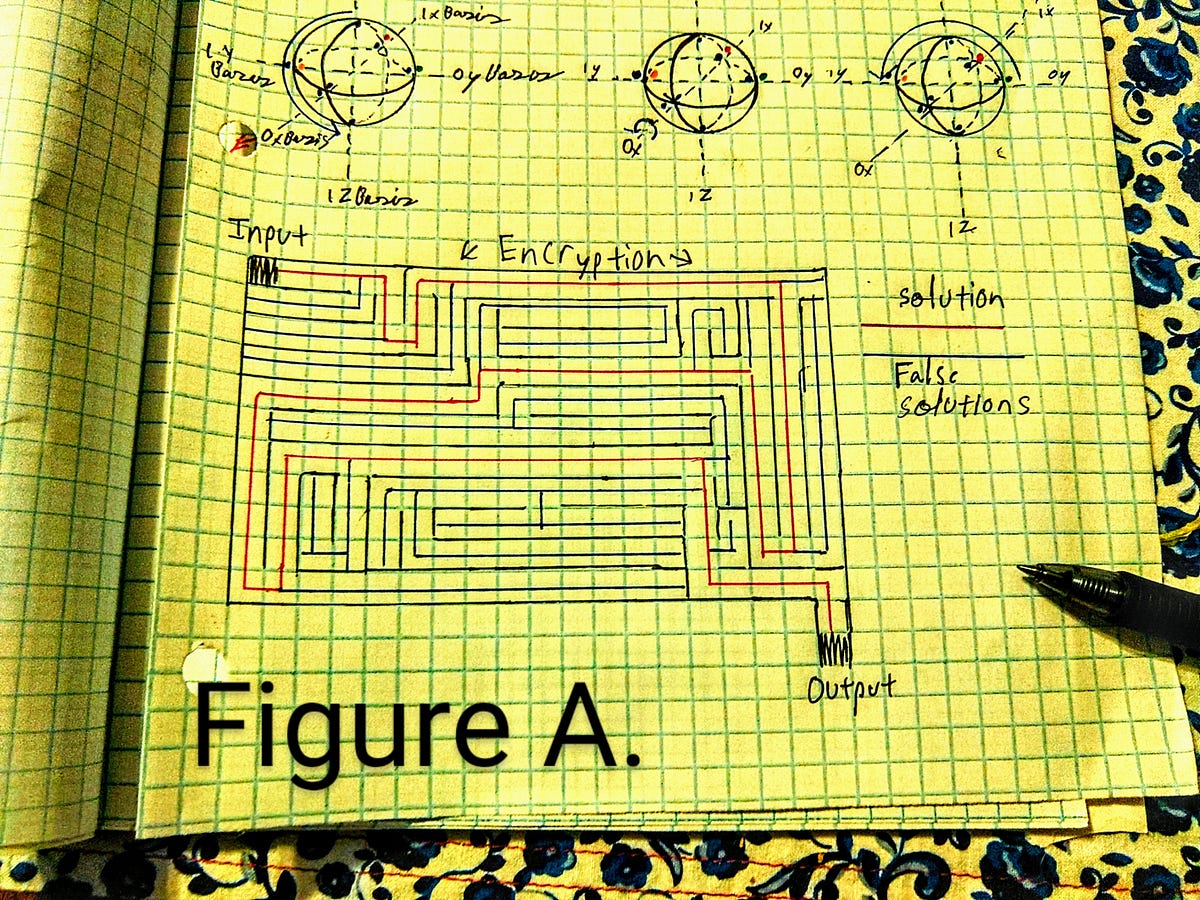 1x Basis
1y Basis
0y Basis
0x Basis
1Z Basis
1x
1y
0y
0x
1Z
1x
1y
0y
0x
1Z
Input
Encryption
solution
False
solutions
Output
Figure A.